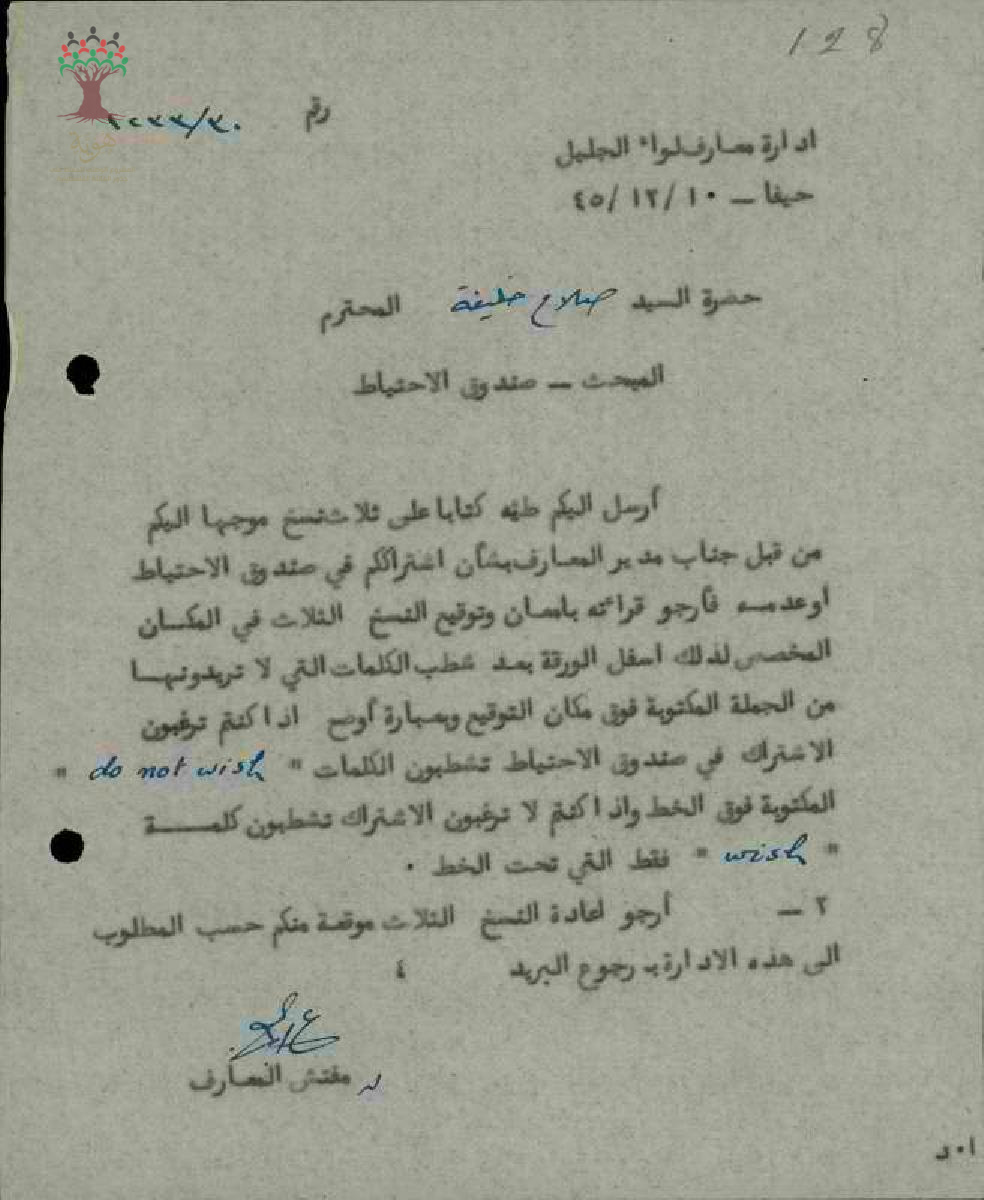 128
رقم ٢٠٣٣/٣٠
ادارة معارف لواء الجليل
حيفا — ١٠ /١٢ /٤٥
حضرة السيد صلاح خليفة المحترم
المبحث — صندوق الاحتياط
أرسل اليكم طيه كتابا على ثلاث نسخ موجها اليكم
من قبل جناب مدير المعارف بشأن اشتراككم في صندوق الاحتياط
او عدمه فأرجو قرائته بامعان وتوقيع النسخ الثلاث في المكان
المخصص لذلك اسفل الورقة بعد شطب الكلمات التي لا تريدونها
من الجملة المكتوبة فوق مكان التوقيع وبعبارة أوضح اذا كنتم ترغبون
الاشتراك في صندوق الاحتياط تشطبون الكلمات " do not wish "
المكتوبة فوق الخط واذا كنتم لا ترغبون الاشتراك تشطبون كلمــــة
" wish " فقط التي تحت الخط ٠
٢ — أرجو اعادة النسخ الثلاث موقعة منكم حسب المطلوب
الى هذه الادارة برجوع البريد ٤
مفتش المعارف
ا٠د